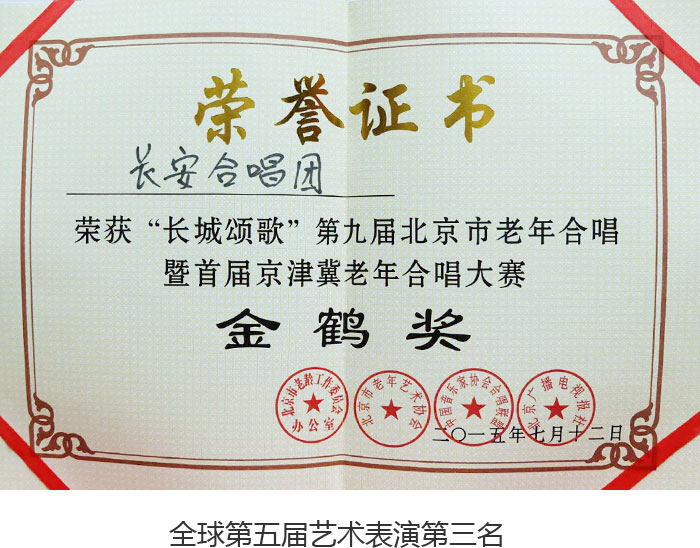 荣誉证书
长安合唱团
荣获“长城颂歌”第九届北京市老年合唱
暨首届京津冀老年合唱大赛
金鹤奖
北京市老龄工作委员会
办公室
北京市老年艺术协会
中国音乐家协会合唱联盟
北京广播电视报社
二〇一五年七月十二日
全球第五届艺术表演第三名